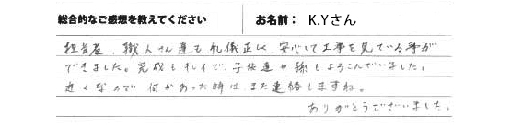 総合的なご感想を教えてください お名前： K.Yさん
担当者、職人さん達も礼儀正しく安心して工事を見ている事が
できました。完成もキレイで、子供達や孫もよろこんでいました。
近くなので何かあった時は、また連絡しますね。
ありがとうございました。